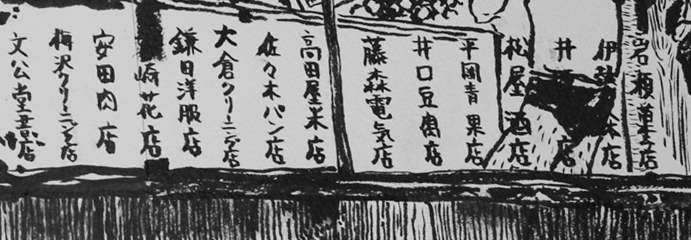 岩瀬菓子店
伊勢 米店
井 店
松屋酒店
平岡青果店
井口豆腐店
藤森電気店
高田屋米店
佐々木パン店
大倉クリーニング店
鎌田洋服店
崎花店
安田肉店
梅沢クリーニング店
文公堂書店